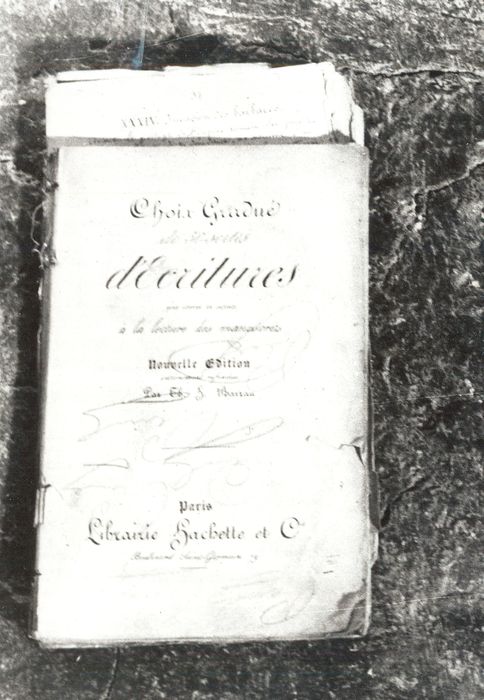 XXXIV
Choix Gradué
de 50 sortes
d'Ecritures
à la lecture des manuscrits
Nouvelle Edition
Par Th. J. Barrau
Paris
Librairie Hachette et Cie
Boulevard Saint-Germain 79